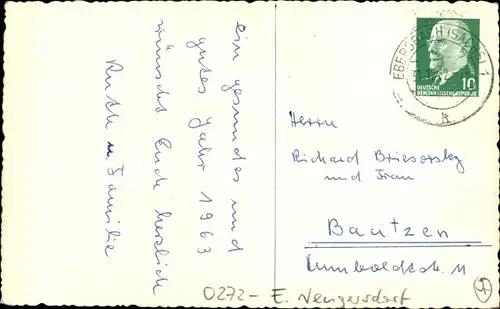 ein gesundes und
gutes Jahr 1963
wünscht Euch herzlich
Ruth u. Familie
EBERSBACH (SACHS) 1
DEUTSCHE
DEMOKRATISCHE REPUBLIK
10
Herrn
Richard
und Frau
Bautzen
Humboldtstr. 11
0272- E. Neugersdorf